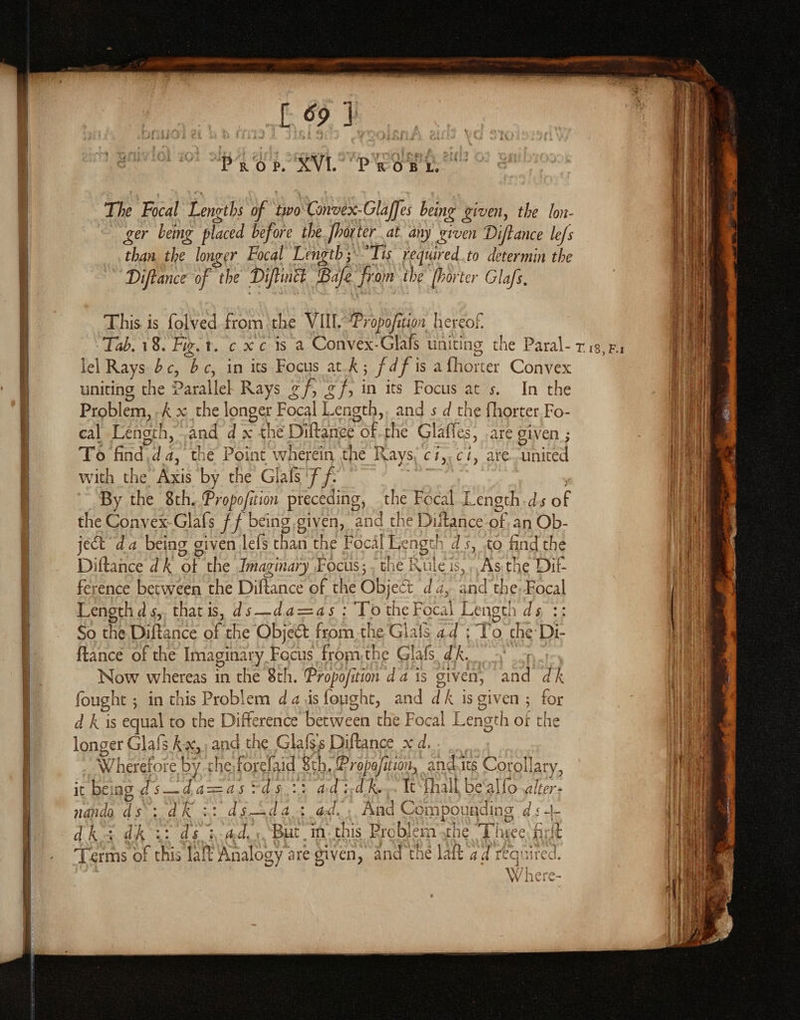 [ 69 ]
PROP. XVI. PROBL.
The Focal Lengths of two Convex-Glaſſes being given, the lon-
ger being placed before the ſhorter at any given Diſtance leſs
than the longer Focal Length; 'Tis required to determin the
Diſtance of the Diſtinct Baſe from the ſhorter Glaſs.
This is ſolved from the VIII. Propoſition hereof.
Tab. 18. Fig. 1. c x c is a Convex-Glaſs uniting the Paral- T 18, F.1
lel Rays b c, b c, in its Focus at k; f d f is a ſhorter Convex
uniting the Parallel Rays g f, g f, in its Focus at s. In the
Problem, k x the longer Focal Length, and s d the ſhorter Fo-
cal Length, and d x the Diſtance of the Glaſſes, are given;
To find d a, the Point wherein the Rays, c i, c i, are united
with the Axis by the Glaſs f f.
By the 8th. Propoſition preceding, the Focal Length d s of
the Convex-Glaſs f f being given, and the Diſtance of an Ob-
ject d a being given leſs than the Focal Length d s, to find the
Diſtance d k of the Imaginary Focus; the Rule is, As the Dif-
ference between the Diſtance of the Object d a, and the Focal
Length d s, that is, d s—d a=a s : To the Focal Length d s ::
So the Diſtance of the Object from the Glaſs a d : To the Di-
ſtance of the Imaginary Focus from the Glaſs d k.
Now whereas in the 8th. Propoſition d a is given, and d k
ſought; in this Problem d a is ſought, and d k is given; for
d k is equal to the Difference between the Focal Length of the
longer Glaſs k x, and the Glaſs's Diſtance x d.
Wherefore by the foreſaid 8th. Propoſition, and its Corollary,
it being d s—d a=a s : d s :: a d : d k. It ſhall be alſo alter-
nando d s : d k :: d s—d a : a d. And Compounding d s +
d k : d k :: d s : a d. But in this Problem the Three firſt
Terms of this laſt Analogy are given, and the laſt a d required.
Where-